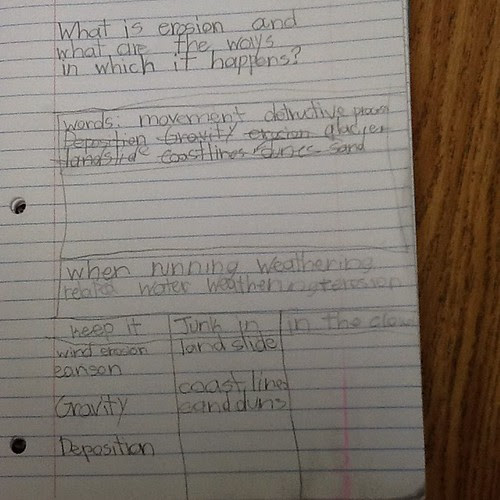 What is erosion and
what are the ways
in which it happens?
words: movement detructive
Deposition Gravity erosion glacier
landslide coastlines dunes sand
when running weathering
water weathering
keep it Junk in in the
wind erosion landslide
Gravity coast line
sand duns
Deposition